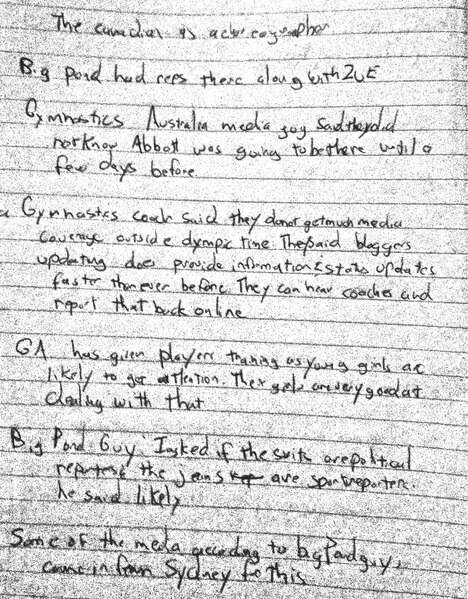 The canadian is a choreographer
Big Pond had reps there along with 2UE
Gymnastics Australia media guy said they did
not know Abbott was going to be there until a
few days before.
a Gymnastics coach said they do not get much media
coverage outside olympic time. They said bloggers
updating does provide information & status updates
faster than ever before. They can hear coaches and
report that back online
GA has given players training as young girls are
likely to get attention. The girls are very good at
dealing with that
Big Pond Guy I asked if the suits are political
reporters the jeans are sport reporters.
he said likely
Some of the media according to big Pond guy,
came in from Sydney for this